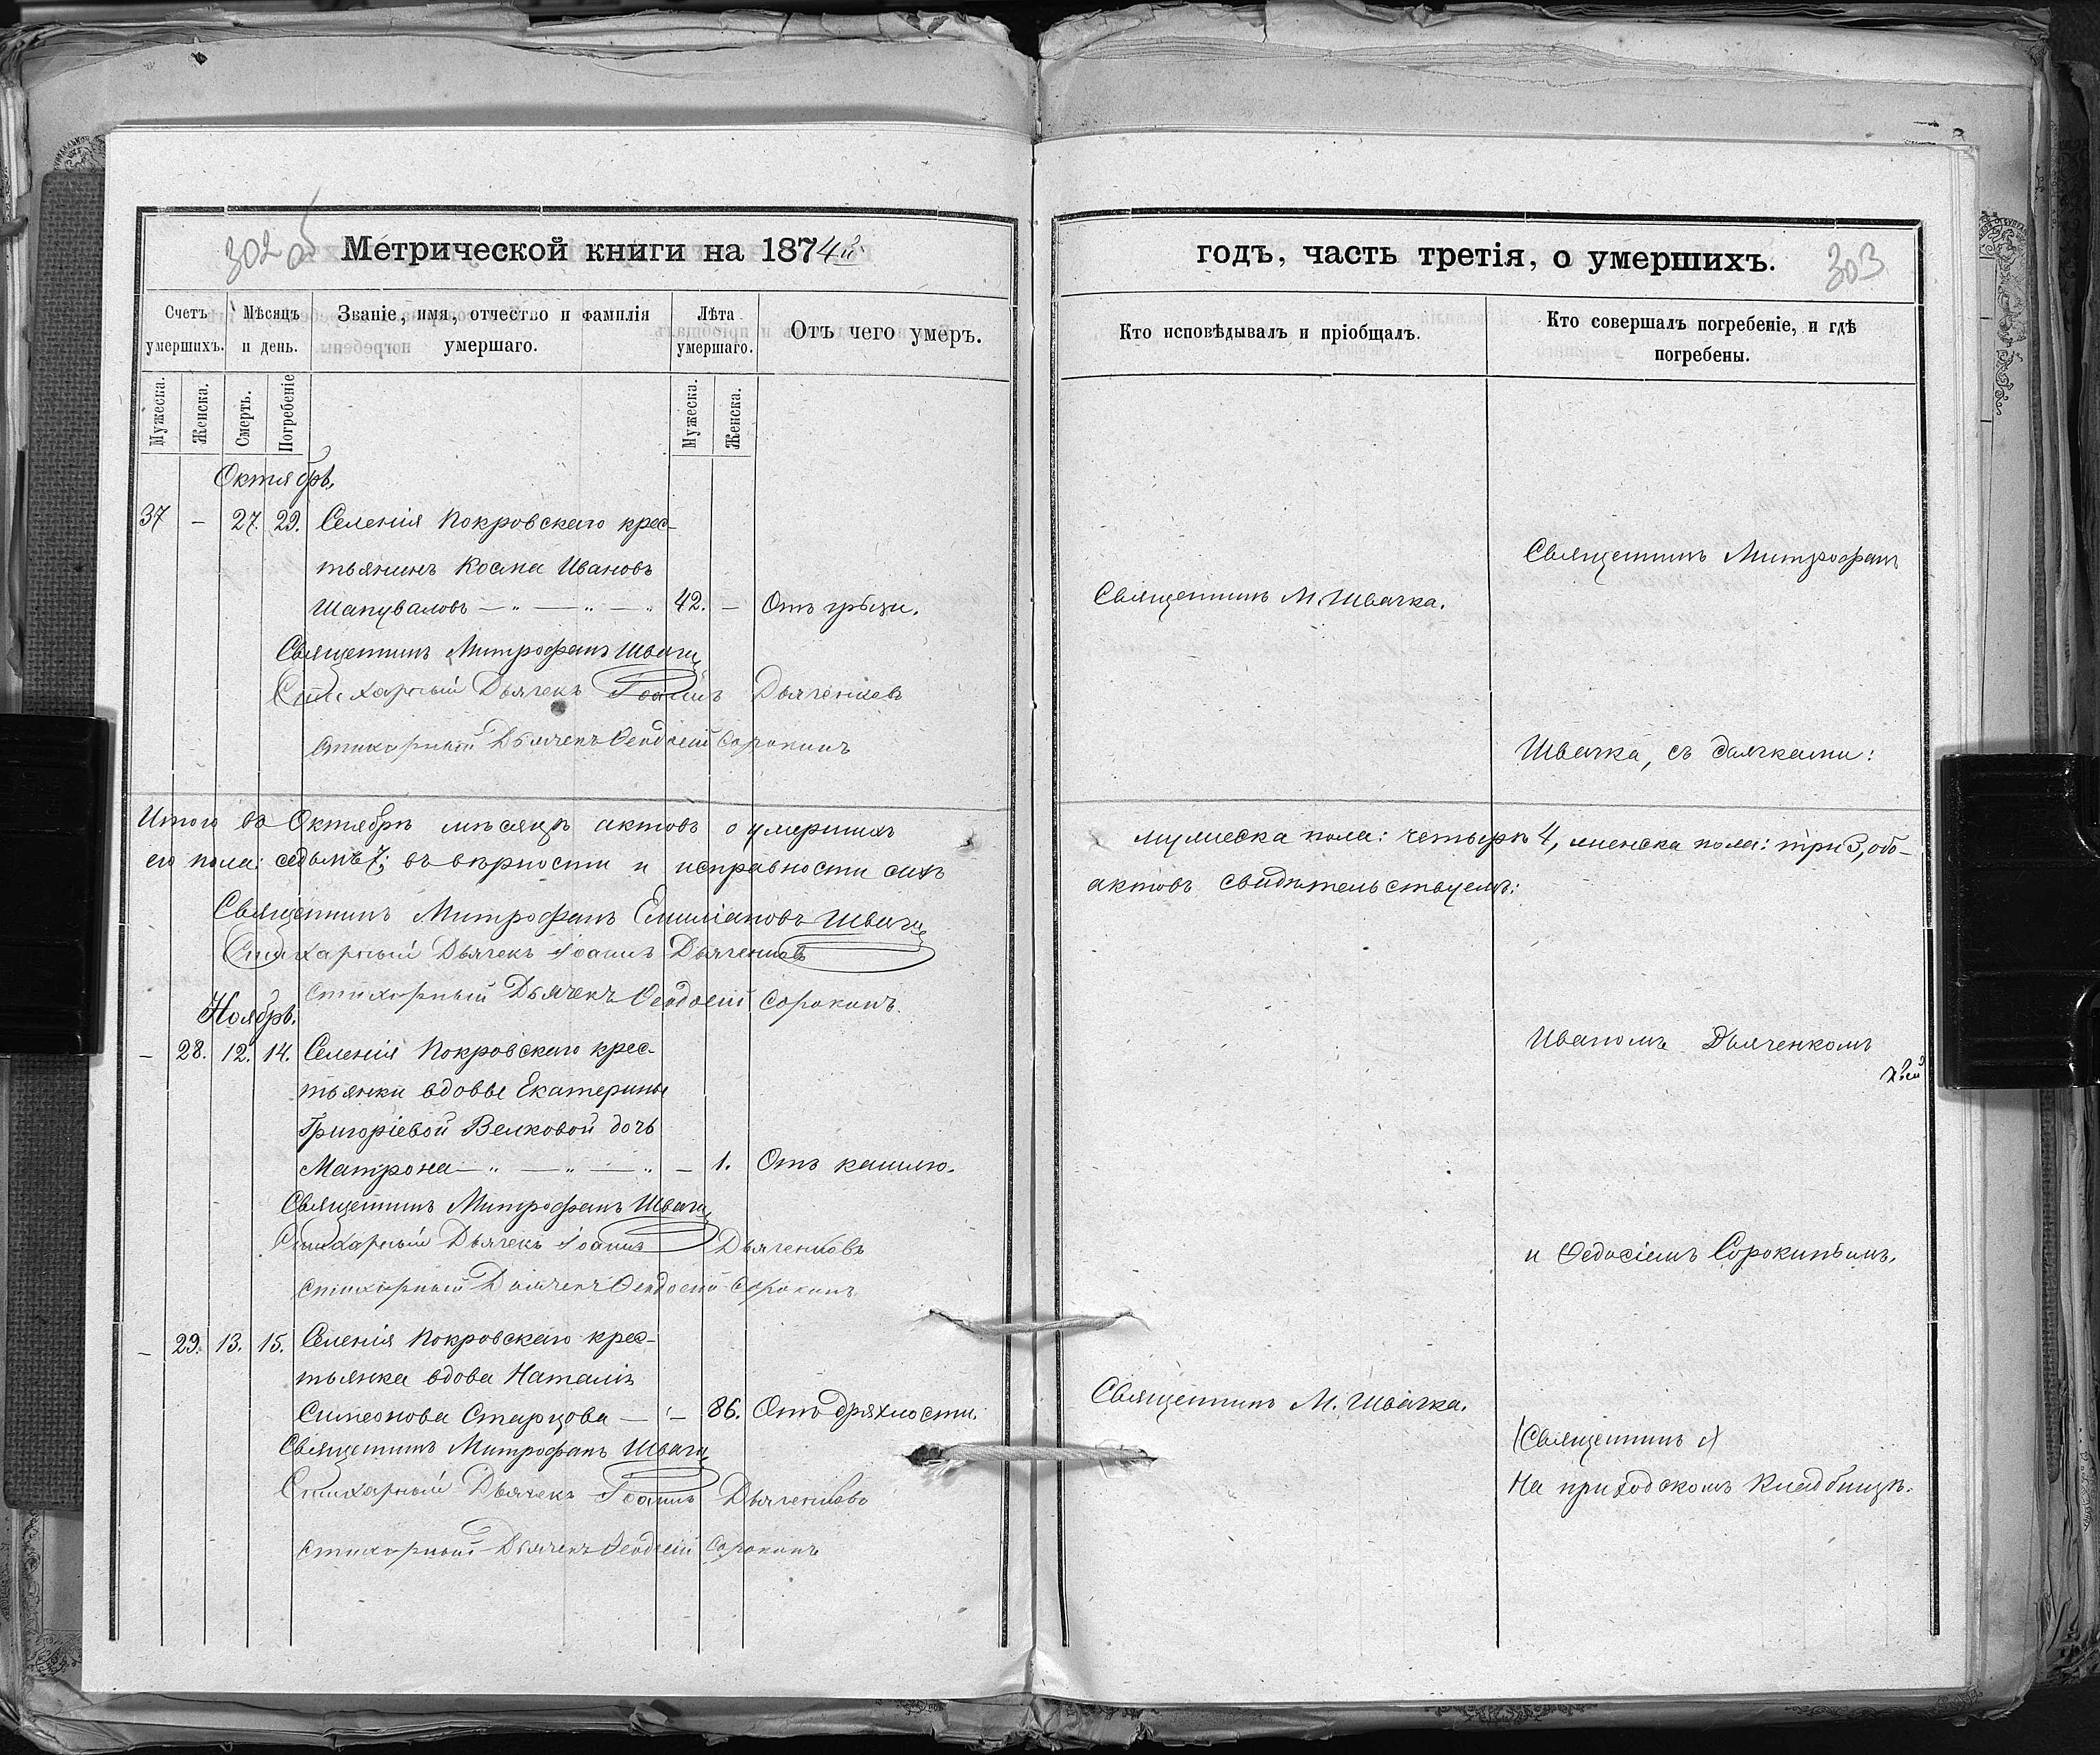 302 об
Метрической книги на 1874й
Счетъ умершихъ.
Мѣсяцъ и день.
Званіе, имя, отчество и фамилія умершаго.
Лѣта умершаго.
Отъ чего умеръ.
Мужеска.
Женска.
Смерть.
Погребеніе
Мужеска.
Женска.
Октябрь.
37 – 27. 29. Селенія Покровскаго крес-
тьянинъ Косма Ивановъ
Шапуваловъ — „ — „ — „ 42. – Отъ грызи.
Священникъ Митрофанъ Швачка
Стихарный Дьячекъ Іоаннъ Дьяченковъ
стихарный Дьячекъ Ѳеодосій Сорокинъ
Итого въ Октябрѣ мѣсяцѣ актовъ о умершихъ
его пола: седьмъ 7; въ вѣрности и исправности сихъ
Священникъ Митрофанъ Емиліановъ Швачка
Стихарный Дьячекъ Іоаннъ Дьяченковъ
стихарный Дьячекъ Ѳеодосій Сорокинъ.
Ноябрь.
– 28. 12. 14. Селенія Покровскаго крес-
тьянки вдовы Екатерины
Григоріевой Велковой дочь
Матрона — „ — „ — „ – 1. Отъ кашлю.
Священникъ Митрофанъ Швачка
Стихарный Дьячекъ Іоаннъ Дьяченковъ
стихарный Дьячекъ Ѳеодосій Сорокинъ
– 29. 13. 15. Селенія Покровскаго крес-
тьянка вдова Наталія
Симеонова Старцова — – 86. Отъ дряхлости.
Священникъ Митрофанъ Швачка
Стихарный Дьячекъ Іоаннъ Дьяченковъ
стихарный Дьячекъ Ѳеодосій Сорокинъ
годъ, часть третія, о умершихъ.
303
Кто исповѣдывалъ и пріобщалъ.
Кто совершалъ погребеніе, и гдѣ погребены.
Священникъ Митрофанъ
Священникъ М. Швачка.
Швачка, съ дьячками:
мужеска пола: четыре 4, женска пола: три 3, обо-
актовъ свидѣтельствуемъ:
Иваномъ Дьяченкомъ
и Ѳедосіемъ Сорокинымъ.
Священникъ М. Швачка.
(Священникъ
На приходскомъ кладбищѣ.